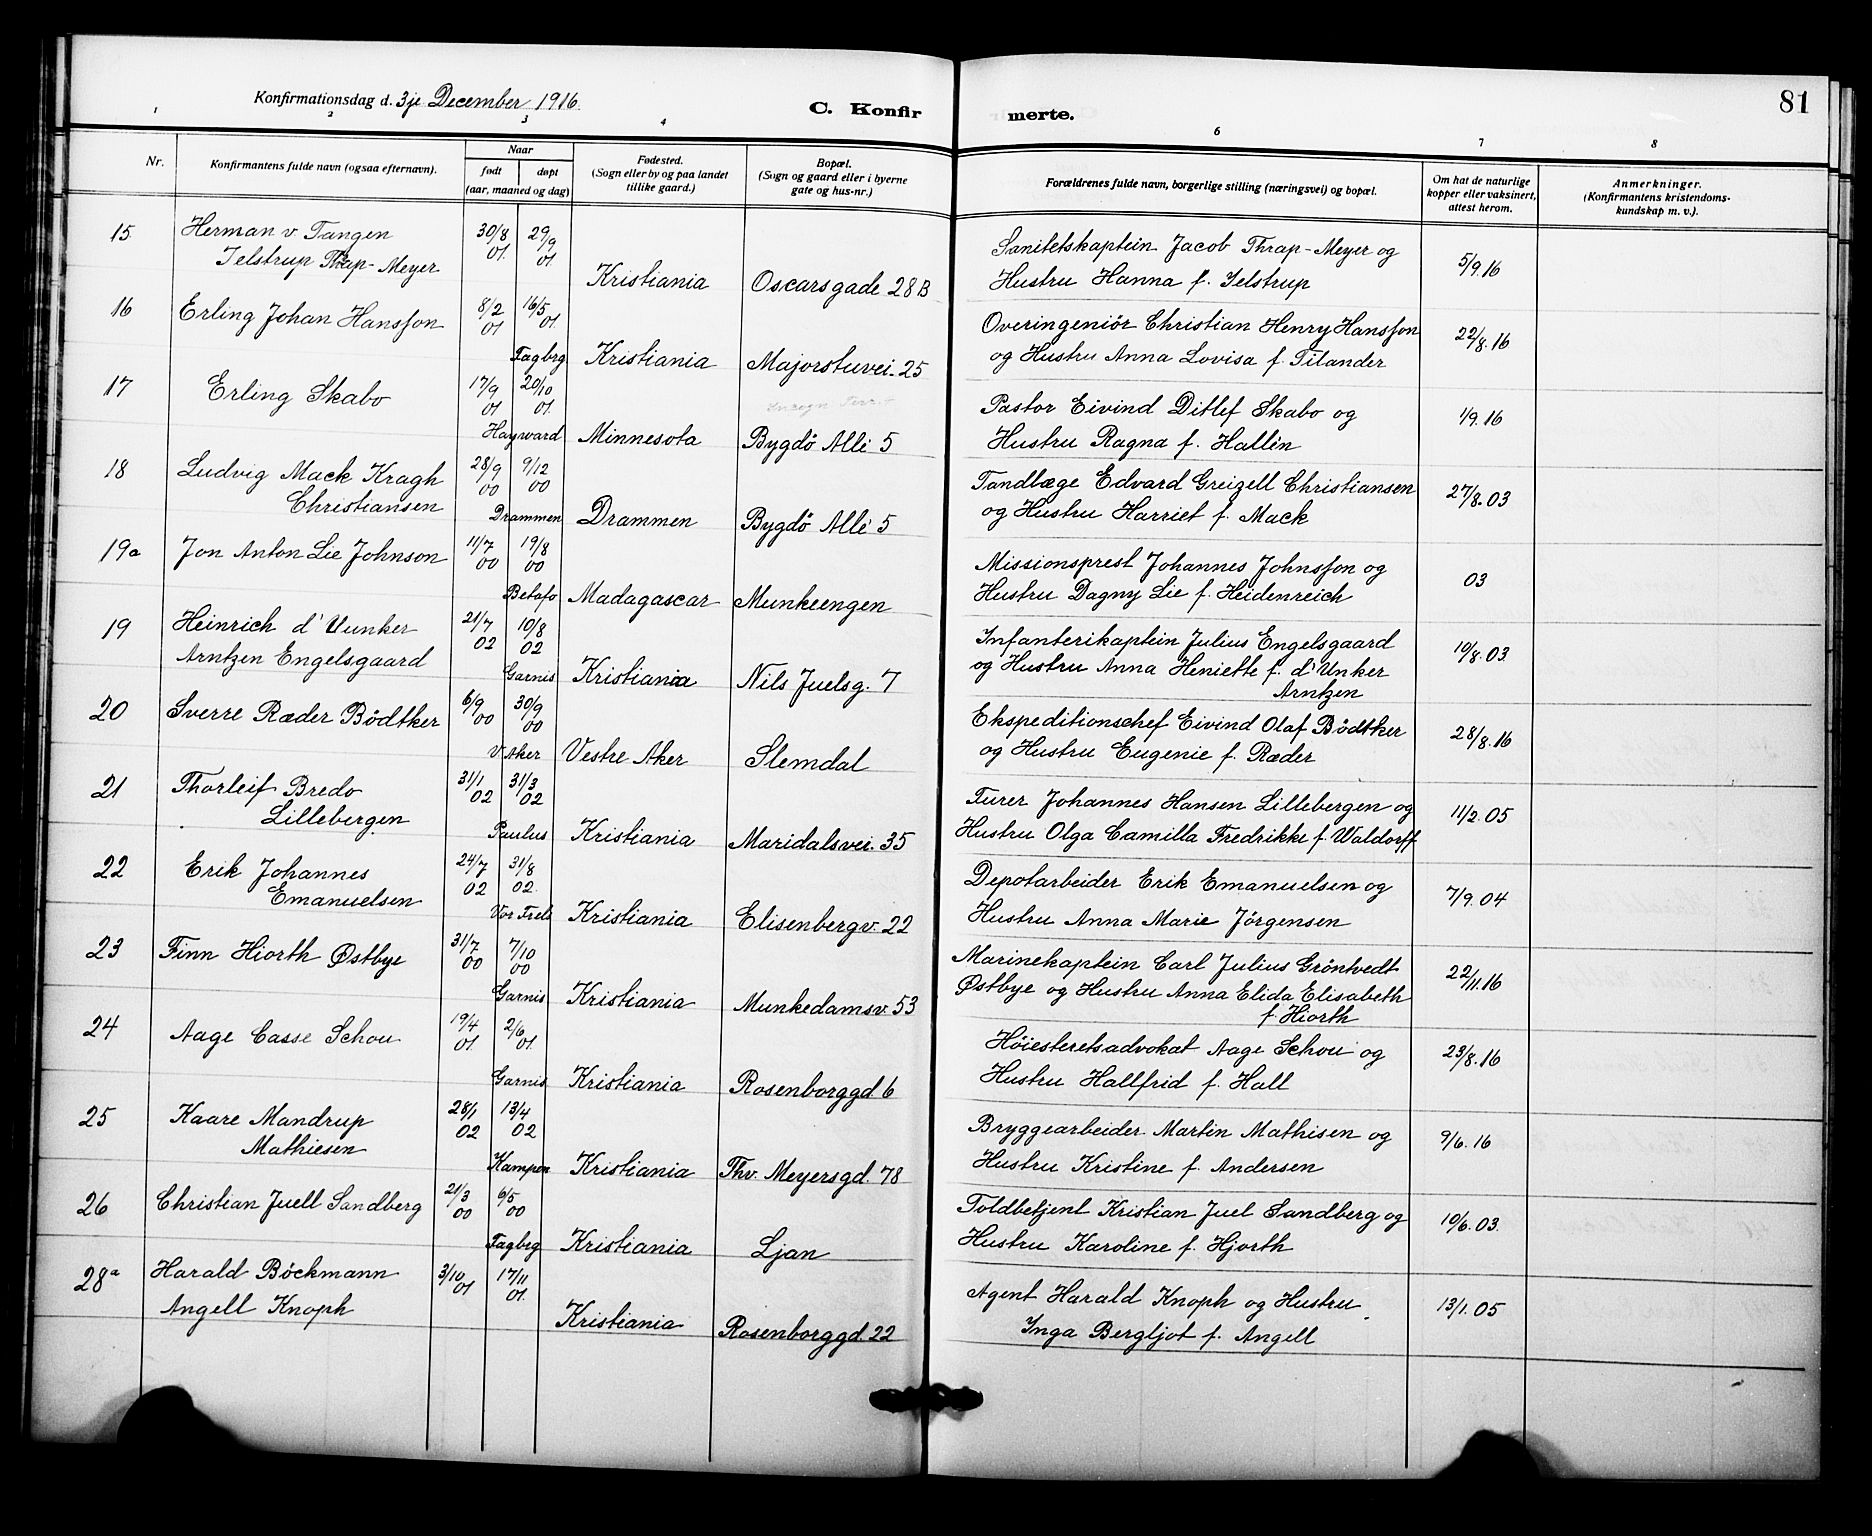 Konfirmationsdag d. 3je December 1916. C. Konfirmerte. 81
1 2 3 4 6 7 8
Nr. Konfirmantens fulde navn (ogsaa efternavn). Naar født døpt (aar, maaned og dag) Fødested. (Sogn eller by og paa landet tillike gaard.) Bopæl. (Sogn og gaard eller i byerne gate og hus-nr.) Forældrenes fulde navn, borgerlige stilling (næringsvei) og bopæl. Om hat de naturlige kopper eller vaksinert, attest herom. Anmerkninger. (Konfirmantens kristendoms-kundskap m. v.).
15 Herman v. Tangen 30/8 01. 29/9 01. Sanitetskaptein Jacob Thrap-Meyer og 5/9.16
Jelstrup Thrap-Meyer Kristiania Oscarsgade 28B Hustru Hanna f. Jelstrup
16 Erling Johan Hansson 8/2 01 16/5 01. Overingeniör Christian Henry Hansson 22/8.16
Fagbrg Kristiania Majorstuvei. 25 og Hustru Anna Lovisa f. Tilander
17 Erling Skabo 17/9 01 20/10 01. Pastor Eivind Ditlef Skabo og 1/9.16
Hayward Minnesota Bygdö Allé 5 Hustru Ragna f. Hallén
18 Ludvig Mack Kragh 28/9 00 9/12 00 Tandlæge Edvard Greizell Christiansen 27/8.03
Christiansen Drammen Drammen Bygdö Allé 5 og Hustru Harriet f. Mack
19a Jon Anton Lie Johnson 11/7 00 19/8 00 Missionsprest Johannes Johnsson og 03
Betafo Madagascar Munkeengen Hustru Dagny Lie f. Heidenreich
19 Heinrich d'Uunker 21/7 02 10/8 02 Infanterikaptein Julius Engelsgaard 10/8.03.
Arntzen Engelsgaard Garnis Kristiania Nils Juelsg. 7 og Hustru Anna Heniette f. d'Unker
Arntzen
20 Sverre Ræder Bödtker 6/9 00 30/9 00 Ekspeditionschef Eivind Olaf Bödtker 28/8.16
V. Aker Vestre Aker Slemdal og Hustru Eugenie f. Ræder
21 Thorleif Bredo 31/1 02 31/3 02 Turer Johannes Hansen Lillebergen og 11/2.05
Lillebergen Paulus Kristiania Maridalsvei. 35 Hustru Olga Camilla Fredrikke f. Waldorff
22 Erik Johannes 24/7 02 31/8 02. Depotarbeider Erik Emanuelsen og 7/9.04
Emanuelsen Vor Frels Kristiania Elisenbergv. 22 Hustru Anna Marie Jörgensen
23 Finn Hiorth Østbye 31/7 00 7/10 00 Marinekaptein Carl Julius Gröntvedt 22/11.16
Garnis Kristiania Munkedamsv. 53 Østbye og Hustru Anna Elida Elisabeth
f. Hiorth
24 Aage Casse Schou 19/4 01. 2/6 01. Höiesteretsadvokat Aage Schou og 23/8.16
Garnis Kristiania Rosenborggd 6 Hustru Hallfrid f. Hall
25 Kaare Mandrup 28/1 02 13/4 02 Bryggearbeider Martin Mathisen og 9/6.16
Mathiesen Kampen Kristiania Thv. Meyersgd. 78 Hustru Kristine f. Andersen
26 Christian Juell Sandberg 21/3 00 6/5 00 Toldbetjent Kristian Juel Sandberg og 10/6.03.
Fagbrg Kristiania Ljan Hustru Karoline f. Hjorth
28a Harald Böckmann 3/10 01 17/11 01. Agent Harald Knoph og Hustru 13/1.05
Angell Knoph Kristiania Rosenborggd. 22 Inga Bergljot f. Angell